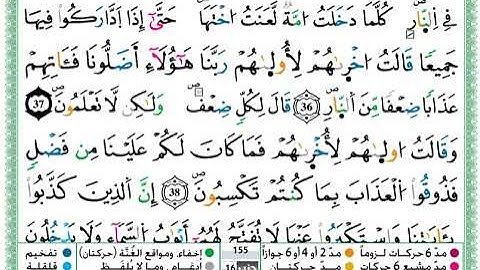 فِي اِ۬لنّ۪ارِۖ كُلَّمَا دَخَلَتُ ا۟مَّةٞ لَّعَنَتُ ا۟خْتَهَاۖ حَتَّىٰٓ إِذَا اَ۪دَّارَكُواْ فِيهَا
جَمِيعاٗ قَالَتُ ا۟خْر۪ىٰهُمْ لِأُول۪ىٰهُمْ رَبَّنَا هَٰٓؤُلَآءِ اَضَلُّونَا فَـَٔاتِهِمْ
عَذَاباٗ ضِعْفاٗ مِّنَ اَ۬لنّ۪ارِۖ 36 قَالَ لِكُلّٖ ضِعْفٞ وَلَٰكِن لَّا تَعْلَمُونَۖ 37
وَقَالَتُ ا۟ول۪ىٰهُمْ لِأُخْر۪ىٰهُمْ فَمَا كَانَ لَكُمْ عَلَيْنَا مِن فَضْلٖ
فَذُوقُواْ اُ۬لْعَذَابَ بِمَا كُنتُمْ تَكْسِبُونَۖ 38 إِنَّ اَ۬لذِينَ كَذَّبُواْ
بِـَٔايَٰتِنَا وَاسْتَكْبَرُواْ عَنْهَا لَا تُفَتَّحُ لَهُمُۥٓ أَبْوَٰبُ اُ۬لسَّمَآءِ وَلَا يَدْخُلُونَ
مدّ 6 حركات لزوماً مدّ 2 أو 4 أو 6 جوازاً 155 إخفاء، ومواقع الغُنَّة (حركتان) تفخيم
مدّ مشبع 6 حركات مدّ حركتان 16 إدغام، وما لا يُلفَظ قلقلة